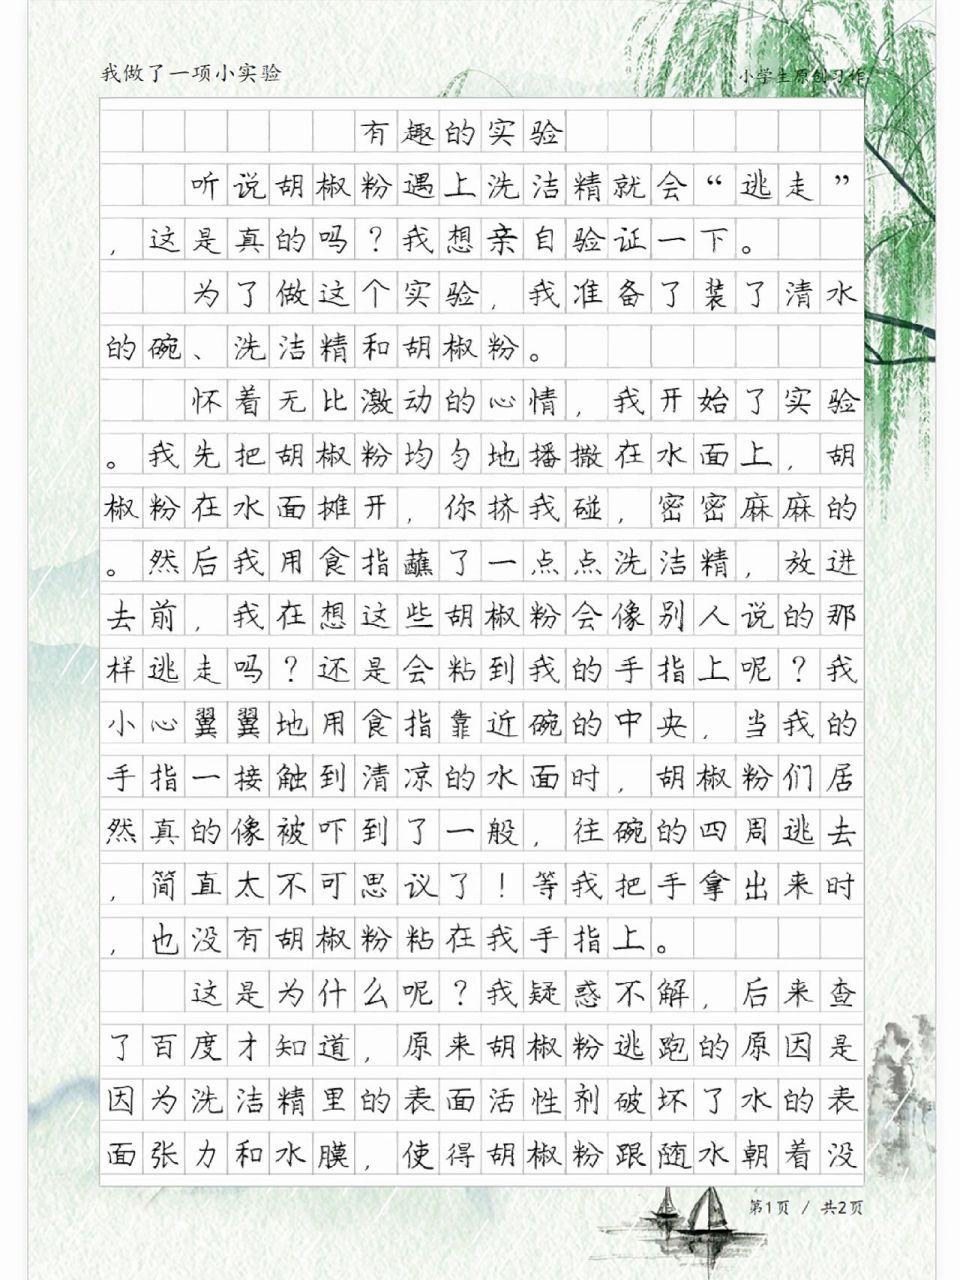 我做了一项小实验
小学生原创习作
有趣的实验
听说胡椒粉遇上洗洁精就会“逃走”
，这是真的吗？我想亲自验证一下。
为了做这个实验，我准备了装了清水
的碗、洗洁精和胡椒粉。
怀着无比激动的心情，我开始了实验
。我先把胡椒粉均匀地播撒在水面上，胡
椒粉在水面摊开，你挤我碰，密密麻麻的
。然后我用食指蘸了一点点洗洁精，放进
去前，我在想这些胡椒粉会像别人说的那
样逃走吗？还是会粘到我的手指上呢？我
小心翼翼地用食指靠近碗的中央，当我的
手指一接触到清凉的水面时，胡椒粉们居
然真的像被吓到了一般，往碗的四周逃去
，简直太不可思议了！等我把手拿出来时
，也没有胡椒粉粘在我手指上。
这是为什么呢？我疑惑不解，后来查
了百度才知道，原来胡椒粉逃跑的原因是
因为洗洁精里的表面活性剂破坏了水的表
面张力和水膜，使得胡椒粉跟随水朝着没
第1页 / 共2页